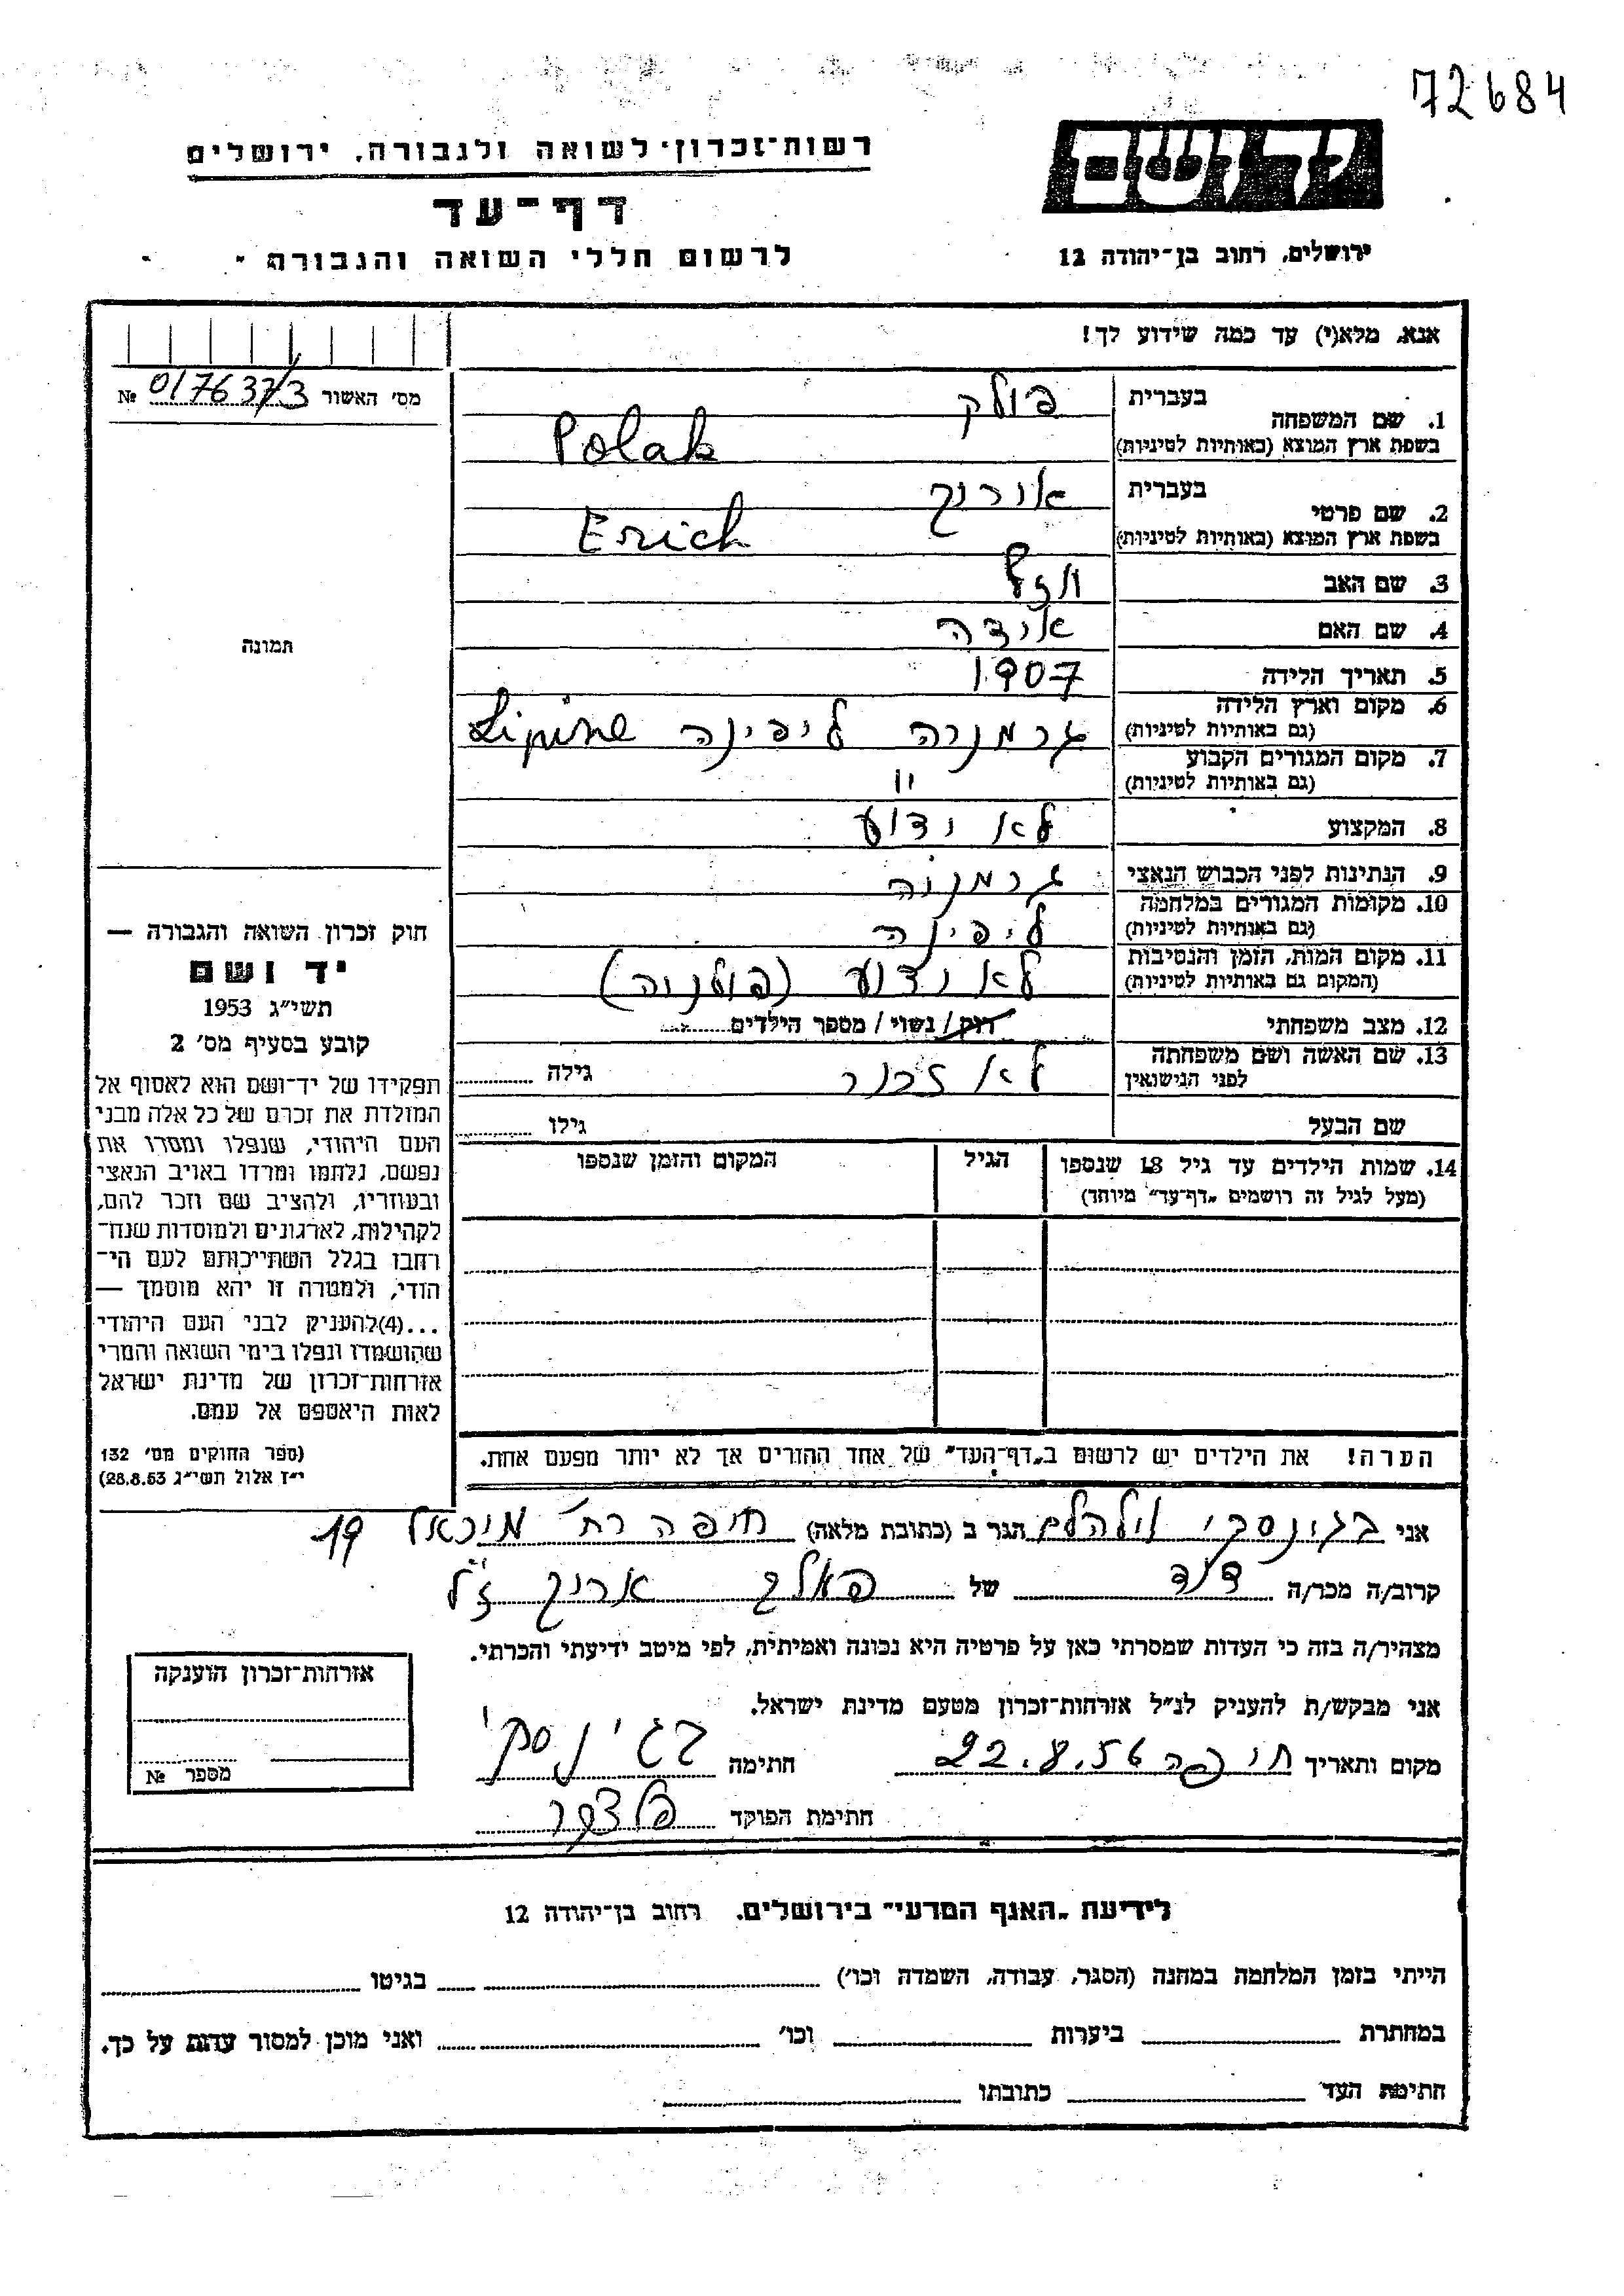 72684
יד ושם
רשות־זכרון לשואה ולגבורה, ירושלים
דף־עד
לרשום חללי השואה והגבורה
ירושלים, רחוב בן־יהודה 12
אנא, מלא(י) עד כמה שידוע לך!
מס' האשור № 017637/3
תמונה
1. שם המשפחה בעברית פולק
בשפת ארץ המוצא (באותיות לטיניות) Polak
2. שם פרטי בעברית אוריך
בשפת ארץ המוצא (באותיות לטיניות) Erich
3. שם האב
4. שם האם אידה
5. תאריך הלידה 1907
6. מקום וארץ הלידה (גם באותיות לטיניות) גרמניה ליפינה Lipine
7. מקום המגורים הקבוע (גם באותיות לטיניות) "
8. המקצוע לא ידוע
9. הנתינות לפני הכבוש הנאצי גרמניה
10. מקומות המגורים במלחמה (גם באותיות לטיניות) ליפינה
11. מקום המות, הזמן והנסיבות (המקום גם באותיות לטיניות) לא ידוע (פולניה)
12. מצב משפחתי רוק / נשוי / מספר הילדים
13. שם האשה ושם משפחתה לפני הנישואין לא זכור גילה
שם הבעל גילו
14. שמות הילדים עד גיל 18 שנספו הגיל המקום והזמן שנספו
(מעל לגיל זה רושמים „דף־עד" מיוחד)
חוק זכרון השואה והגבורה —
יד ושם
תשי"ג 1953
קובע בסעיף מס' 2
תפקידו של יד־ושם הוא לאסוף אל
המולדת את זכרם של כל אלה מבני
העם היהודי, שנפלו ומסרו את
נפשם, נלחמו ומרדו באויב הנאצי
ובעוזריו, ולהציב שם וזכר להם,
לקהילות, לארגונים ולמוסדות שנח־
רחבו בגלל השתייכותם לעם הי־
הודי, ולמטרה זו יהא מוסמך —
...(4)להעניק לבני העם היהודי
שהושמדו ונפלו בימי השואה והמרי
אזרחות־זכרון של מדינת ישראל
לאות היאספם אל עמם.
(ספר החוקים מס' 132
י"ז אלול תשי"ג 28.8.53)
הערה! את הילדים יש לרשום ב„דף־העד" של אחד ההורים אך לא יותר מפעם אחת.
אני בגינסקי וילהלם הגר ב (כתובת מלאה) חיפה רח' מיכאל 19
קרוב/ה מכר/ה דוד של פאלק אריך ז"ל
מצהיר/ה בזה כי העדות שמסרתי כאן על פרטיה היא נכונה ואמיתית, לפי מיטב ידיעתי והכרתי.
אני מבקש/ת להעניק לנ"ל אזרחות־זכרון מטעם מדינת ישראל.
מקום ותאריך חיפה 22.8.56 חתימה בגינסקי
חתימת הפוקד
אזרחות־זכרון הוענקה
מספר №
לידיעת „האגף המדעי" בירושלים. רחוב בן־יהודה 12
הייתי בזמן המלחמה במחנה (הסגר, עבודה, השמדה וכו') בגיטו
במחתרת ביערות וכו' ואני מוכן למסור עדות על כך.
חתימת העד כתובתו